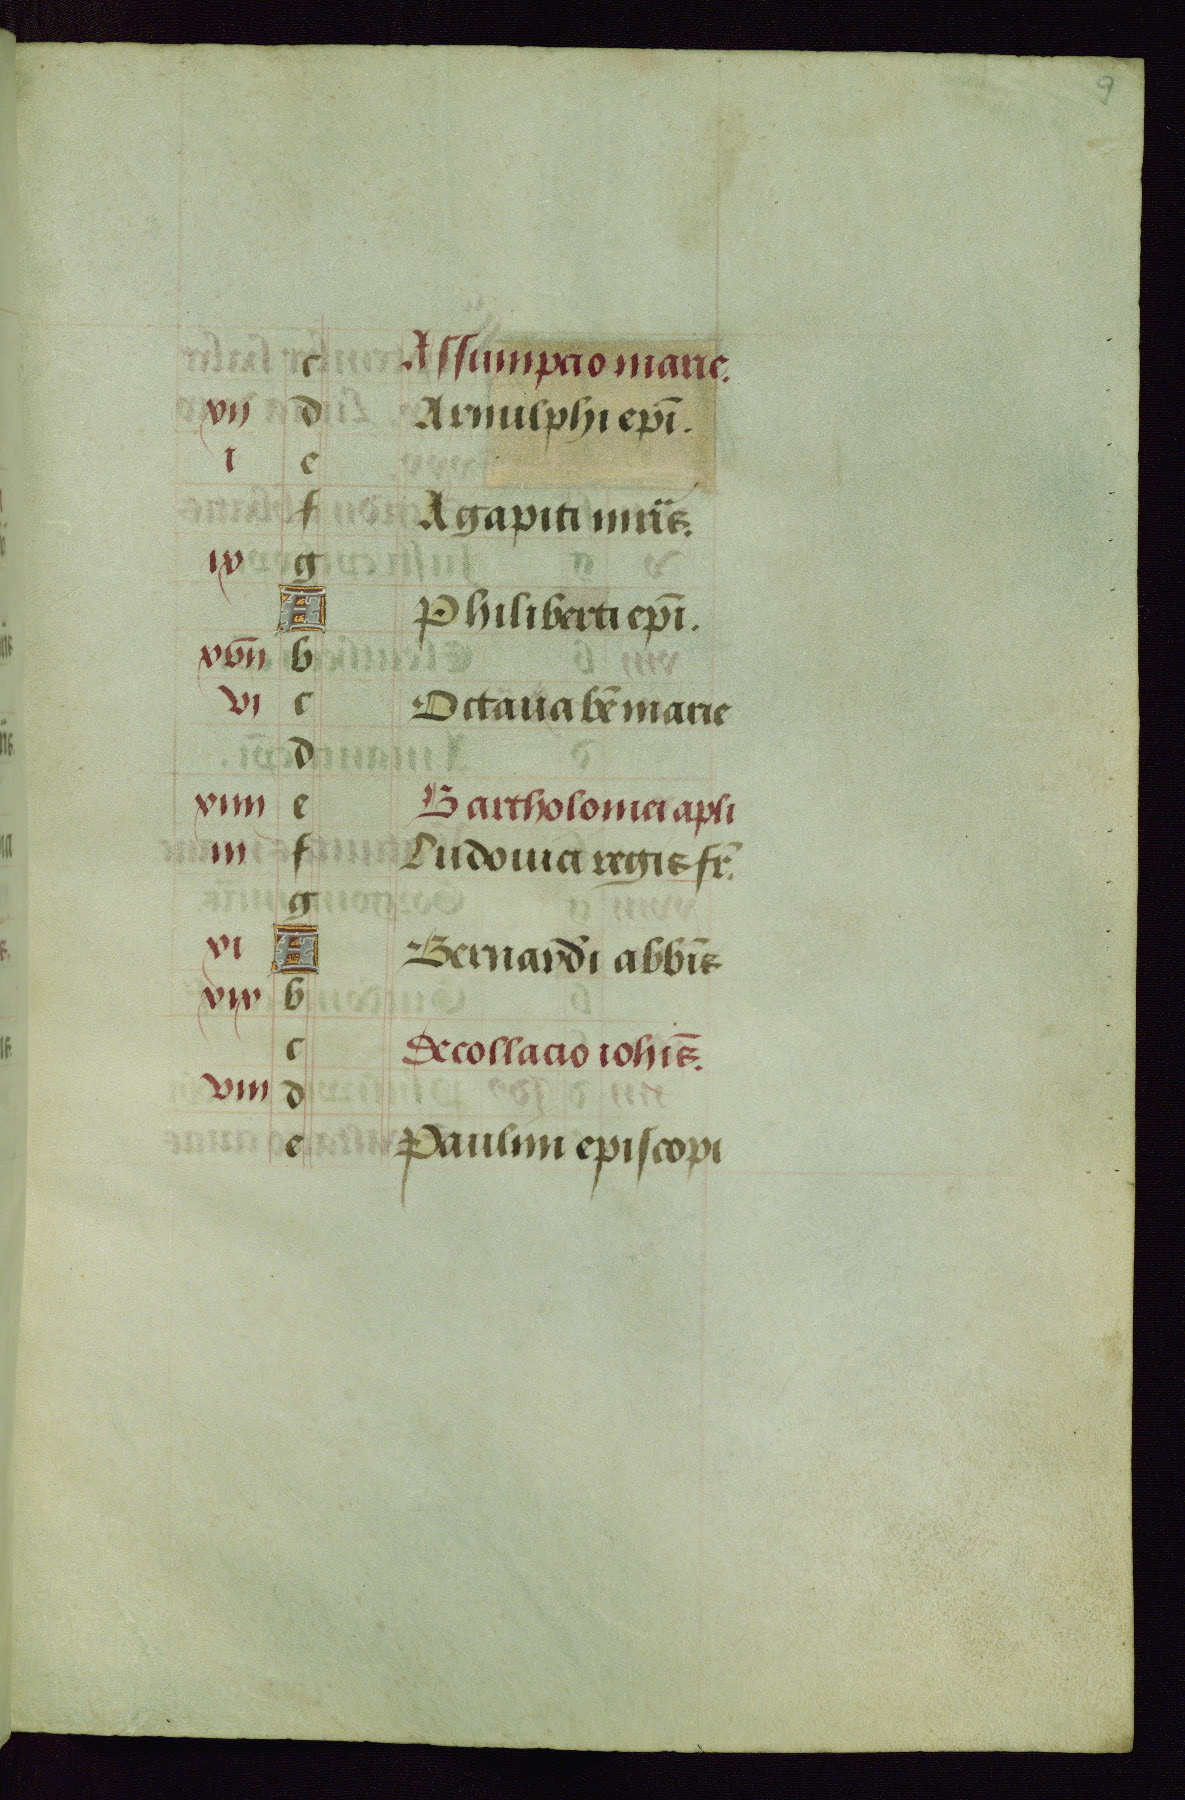 9
c Assumpcio marie.
vii d Arnulphi epi̅.
i e
f Agapiti mr̅is.
ix g
A Philiberti epi̅.
xvii b
vi c Octaua be̅ marie
d
xiiii e Bartholomei apli
iii f Ludouici regis fr̅.
g
xi A Bernardi abbi̅s
xix b
c Decollacio iohi̅s.
viii d
e Paulini episcopi